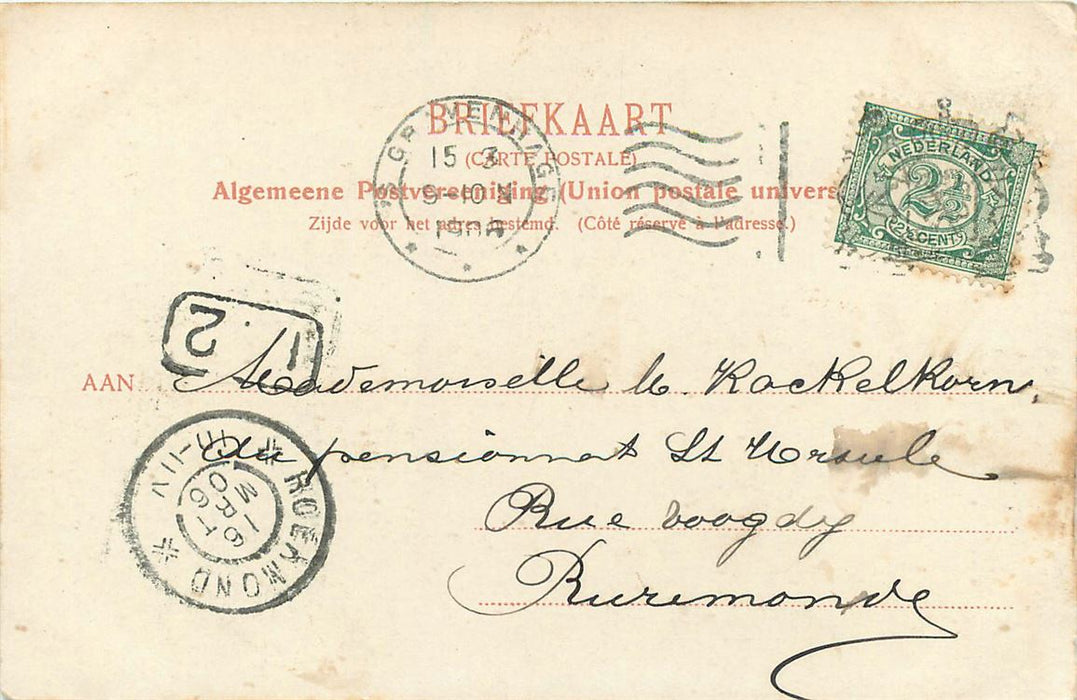 BRIEFKAART
(CARTE POSTALE)
Algemeene Postvereeniging (Union postale univers
Zijde voor het adres bestemd. (Côté réservé à l'adresse.)
'S GRAVENHAGE
15 3
9-10
1906
NEDERLAND
2½
(2½ CENT)
1. 2
AAN Mademoiselle M. Kackelkorn.
Au pensionnat St Ursule
Rue voogdy
Ruremonde
ROERMOND
16 MR 06
10-11V